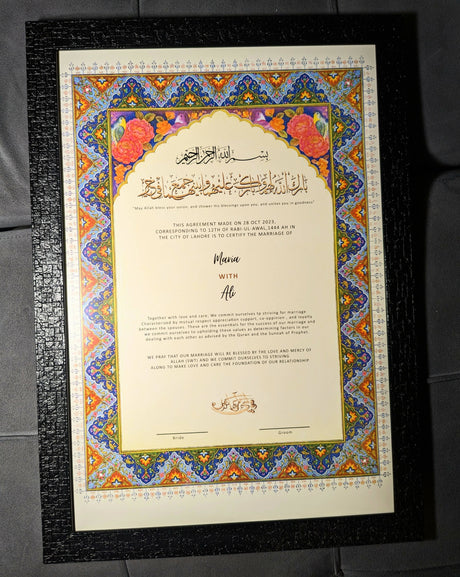 بسم الله الرحمن الرحيم
بارك الله لك وبارك عليك وجمع بينكما في خير
"May Allah bless your union, and shower His blessings upon you, and unites you in goodness"
THIS AGREEMENT MADE ON 28 OCT 2023,
CORRESPONDING TO 12TH OF RABI-UL-AWAL,1444 AH IN
THE CITY OF LAHORE IS TO CERTIFY THE MARRIAGE OF
Maria
WITH
Ali
Together with love and care, We commit ourselves to striving for marriage
Characterized by mutual respect appreciation support, co-oppition , and loyalty
between the spouses. These are the essentials for the success of our marriage and
we commit ourselves to upholding these values as determining factors in our
dealing with each other as advised by the Quran and the Sunnah of Prophet.
WE PRAY THAT OUR MARRIAGE WILL BE BLESSED BY THE LOVE AND MERCY OF
ALLAH (SWT) AND WE COMMIT OURSELVES TO STRIVING
ALONG TO MAKE LOVE AND CARE THE FOUNDATION OF OUR RELATIONSHIP
Bride
Groom